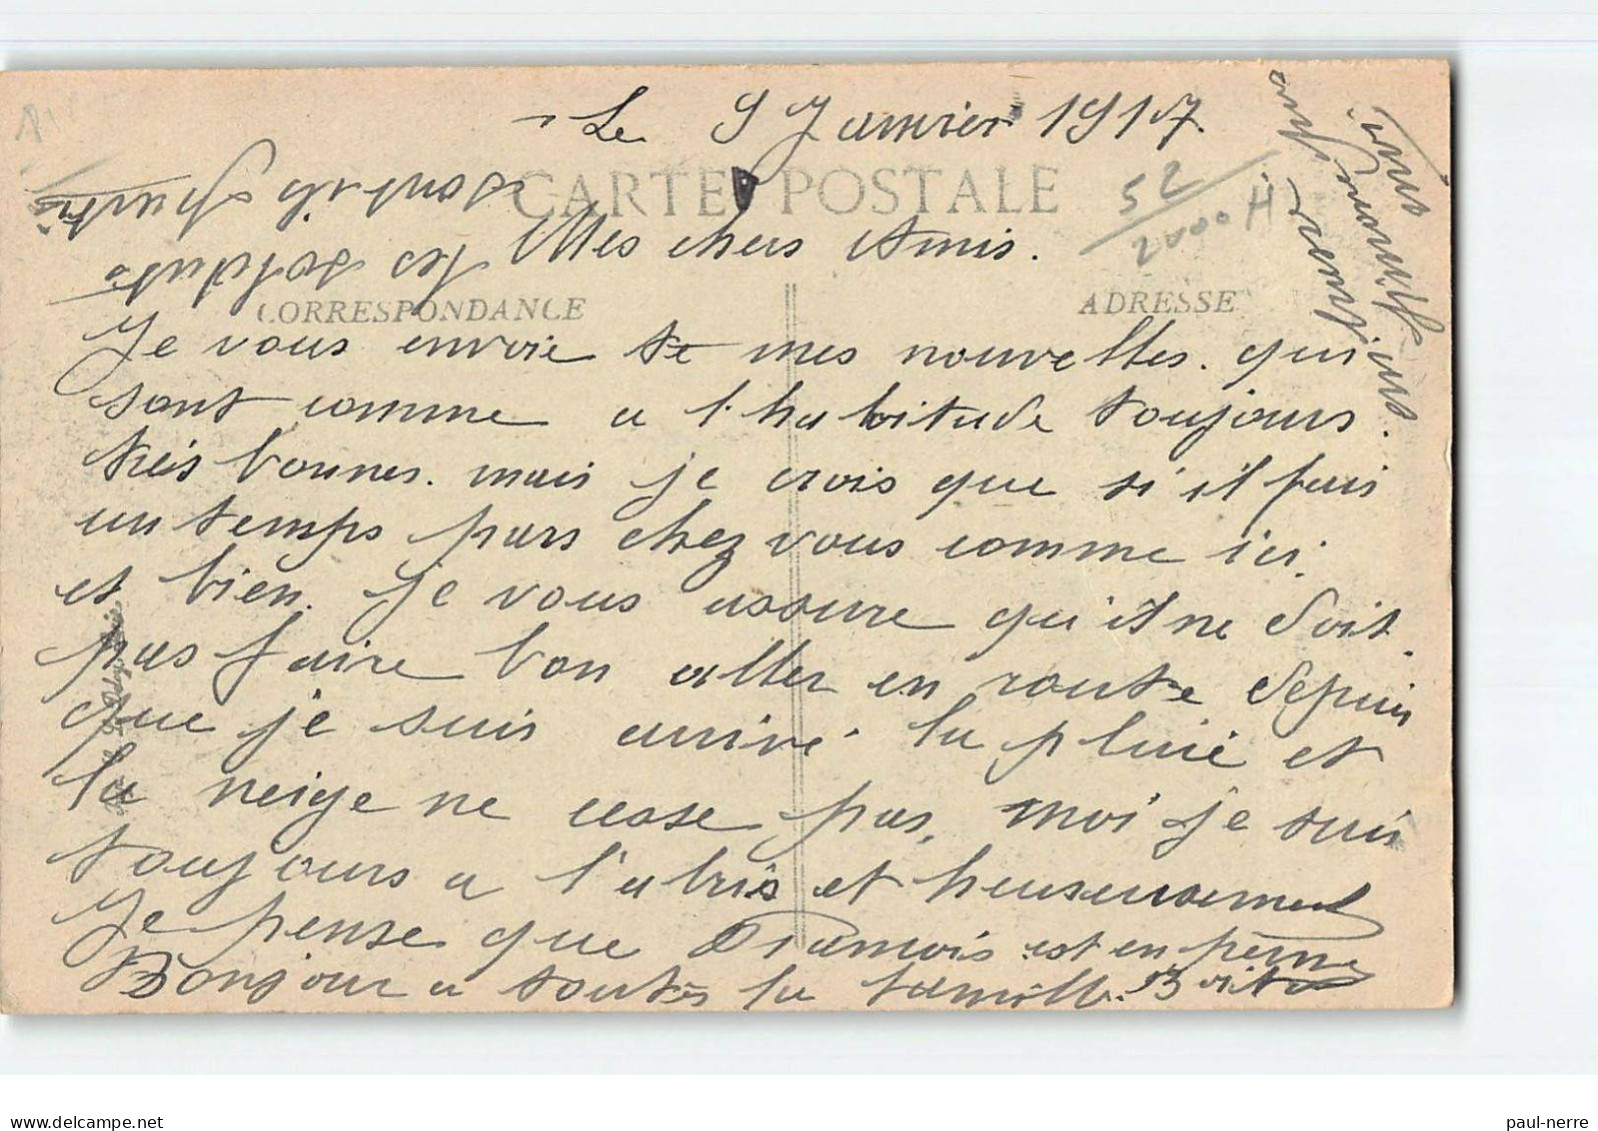 Le 9 Janvier 1917.
CARTE POSTALE
52
2000 H
Mes chers Amis.
CORRESPONDANCE
ADRESSE
Je vous envoie de mes nouvelles. qui
sont comme a l'habitude toujours
très bonnes. mais je crois que si il fais
un temps pars chez vous comme ici.
et bien. je vous assure qu'il ne doit
pas faire bon aller en route depuis
que je suis arrivé la pluie et
la neige ne cesse pas, moi je suis
toujours a l'abris et heureusement
Je pense que François est en perme
Bonjour a toutes la famille.
les soldats
sont ici
un
ami
paul-nerre